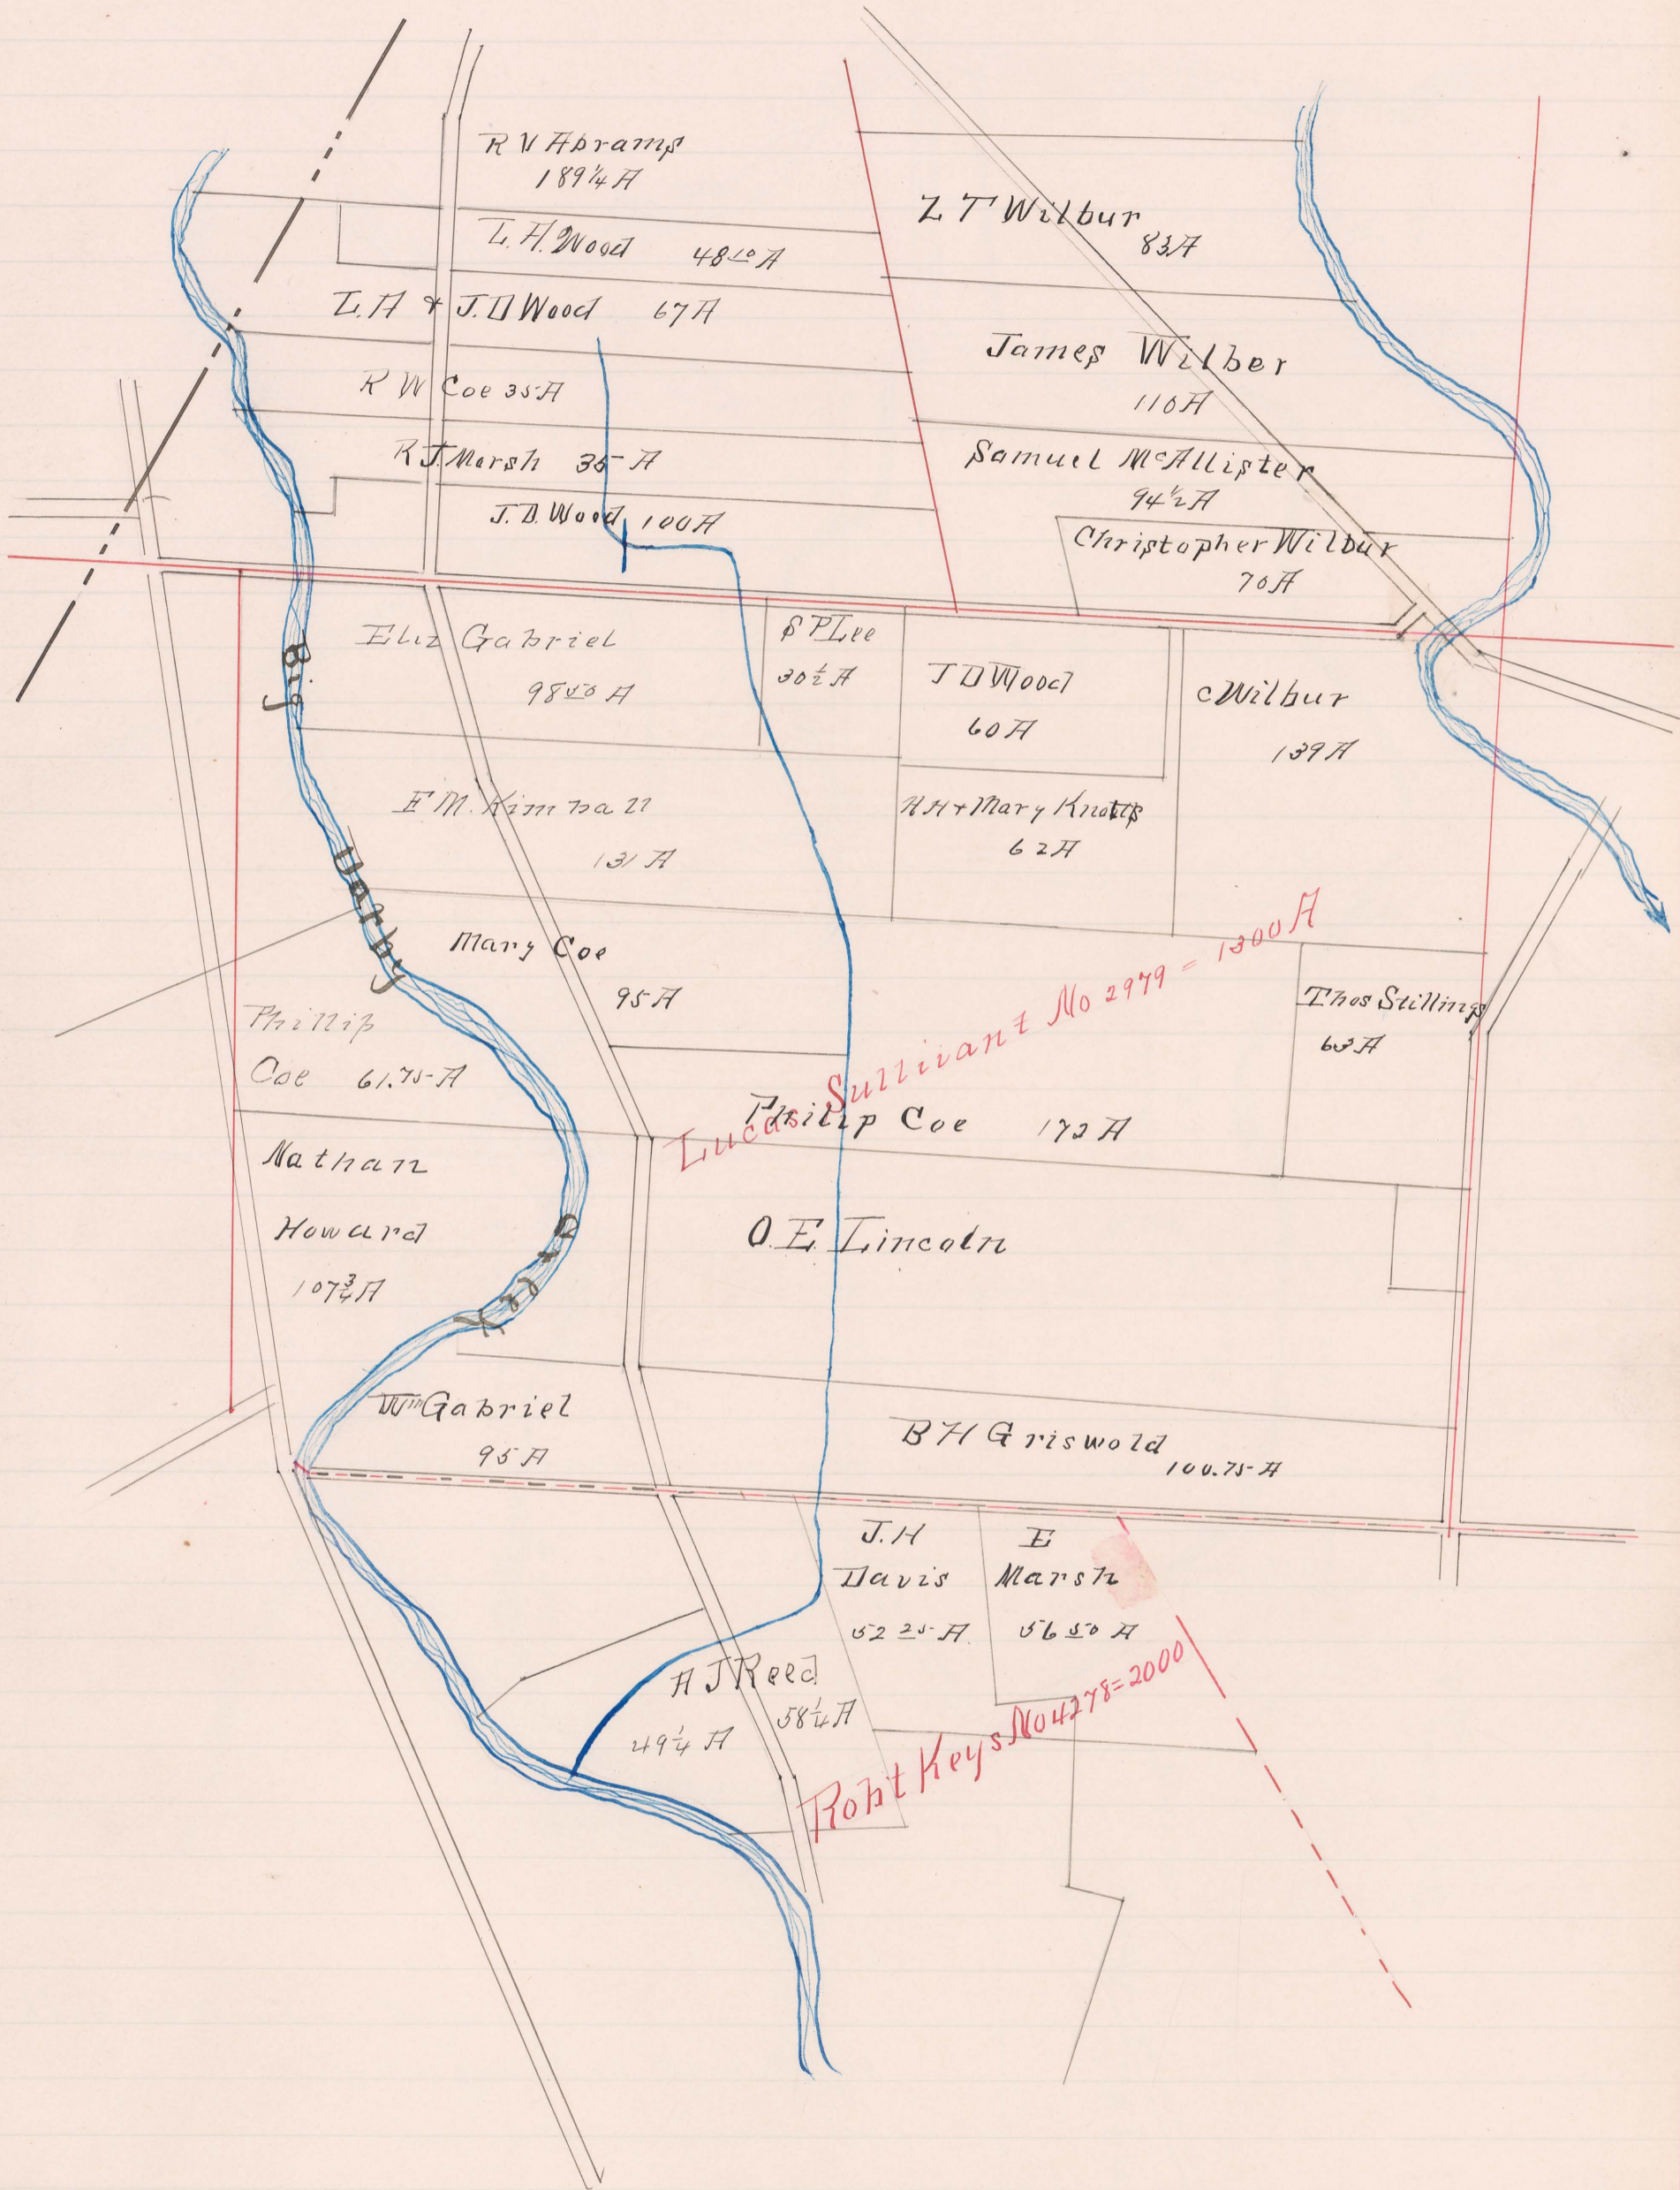 R V Abrams
189 1/4 A
L. A. Wood 48 10 A
L. A & J. D Wood 67 A
R W Coe 35 A
R J. Marsh 35 A
J. D. Wood 100 A
Z T Wilbur
83 A
James Wilber
110 A
Samuel McAllister
94 1/2 A
Christopher Wilbur
70 A
Eliz Gabriel
98 50 A
S P Lee
30 1/2 A
J D Wood
60 A
C Wilbur
139 A
E M. Kimball
131 A
H H + Mary Knotts
62 A
Big Darby Creek
Mary Coe
95 A
Lucas Sullivant No 2979 = 1300 A
Thos Stillings
63 A
Phillip
Coe 61.75 A
Philip Coe 172 A
Nathan
Howard
107 3/4 A
O. E. Lincoln
Wm Gabriel
95 A
B H Griswold
100.75 A
J. H
Davis
52 25 A.
E
Marsh
56 50 A
A J Reed
49 1/4 A
58 1/4 A
Robt Keys No 4278 = 2000